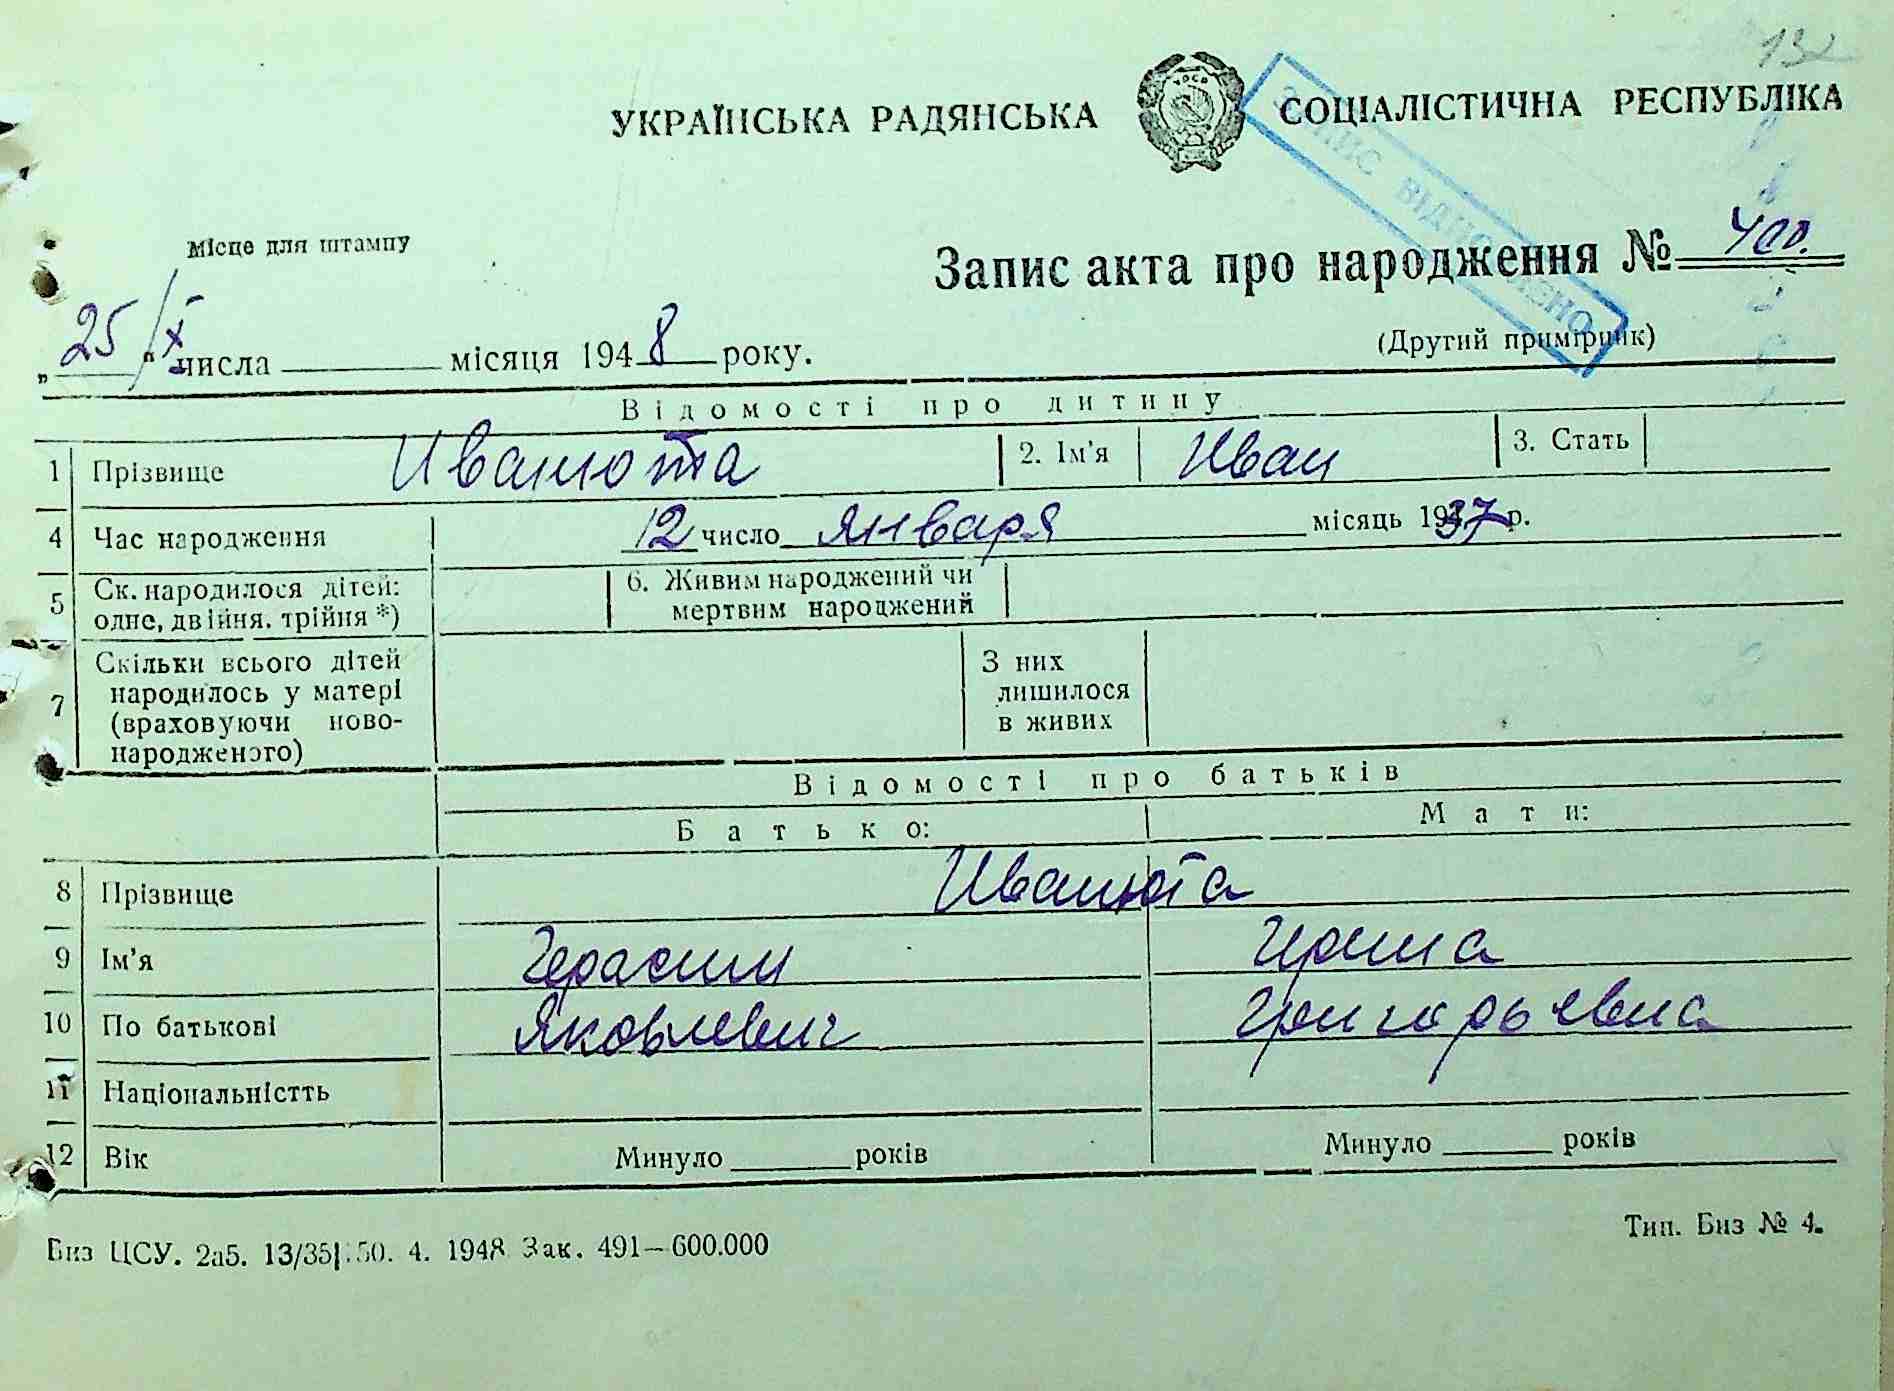 132
УКРАЇНСЬКА РАДЯНСЬКА СОЦІАЛІСТИЧНА РЕСПУБЛІКА
ЗАПИС ВІДНОВЛЕНО
Місце для штампу
Запис акта про народження № 400.
(Другий примірник)
„ 25/X " числа місяця 1948 року.
Відомості про дитину
1 Прізвище Иванюта 2. Ім'я Иван 3. Стать
4 Час народження 12 число января місяць 1937 р.
5 Ск. народилося дітей: одне, двійня, трійня *) 6. Живим народжений чи мертвим народжений
7 Скільки всього дітей народилось у матері (враховуючи новонародженого) З них лишилося в живих
Відомості про батьків
Батько: Мати:
8 Прізвище Иванюта
9 Ім'я Герасим Ирина
10 По батькові Яковлевич Григорьевна
11 Національністть
12 Вік Минуло років Минуло років
Биз ЦСУ. 2а5. 13/35 50. 4. 1948 Зак. 491—600.000
Тип. Биз № 4.